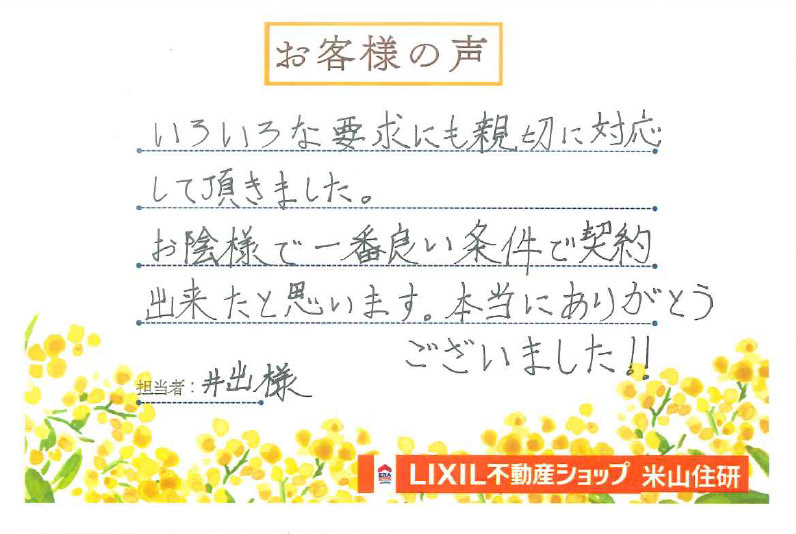 お客様の声
いろいろな要求にも親切に対応
して頂きました。
お陰様で一番良い条件で契約
出来たと思います。本当にありがとう
ございました!!
担当者：井出様
ERA
LIXIL不動産ショップ 米山住研